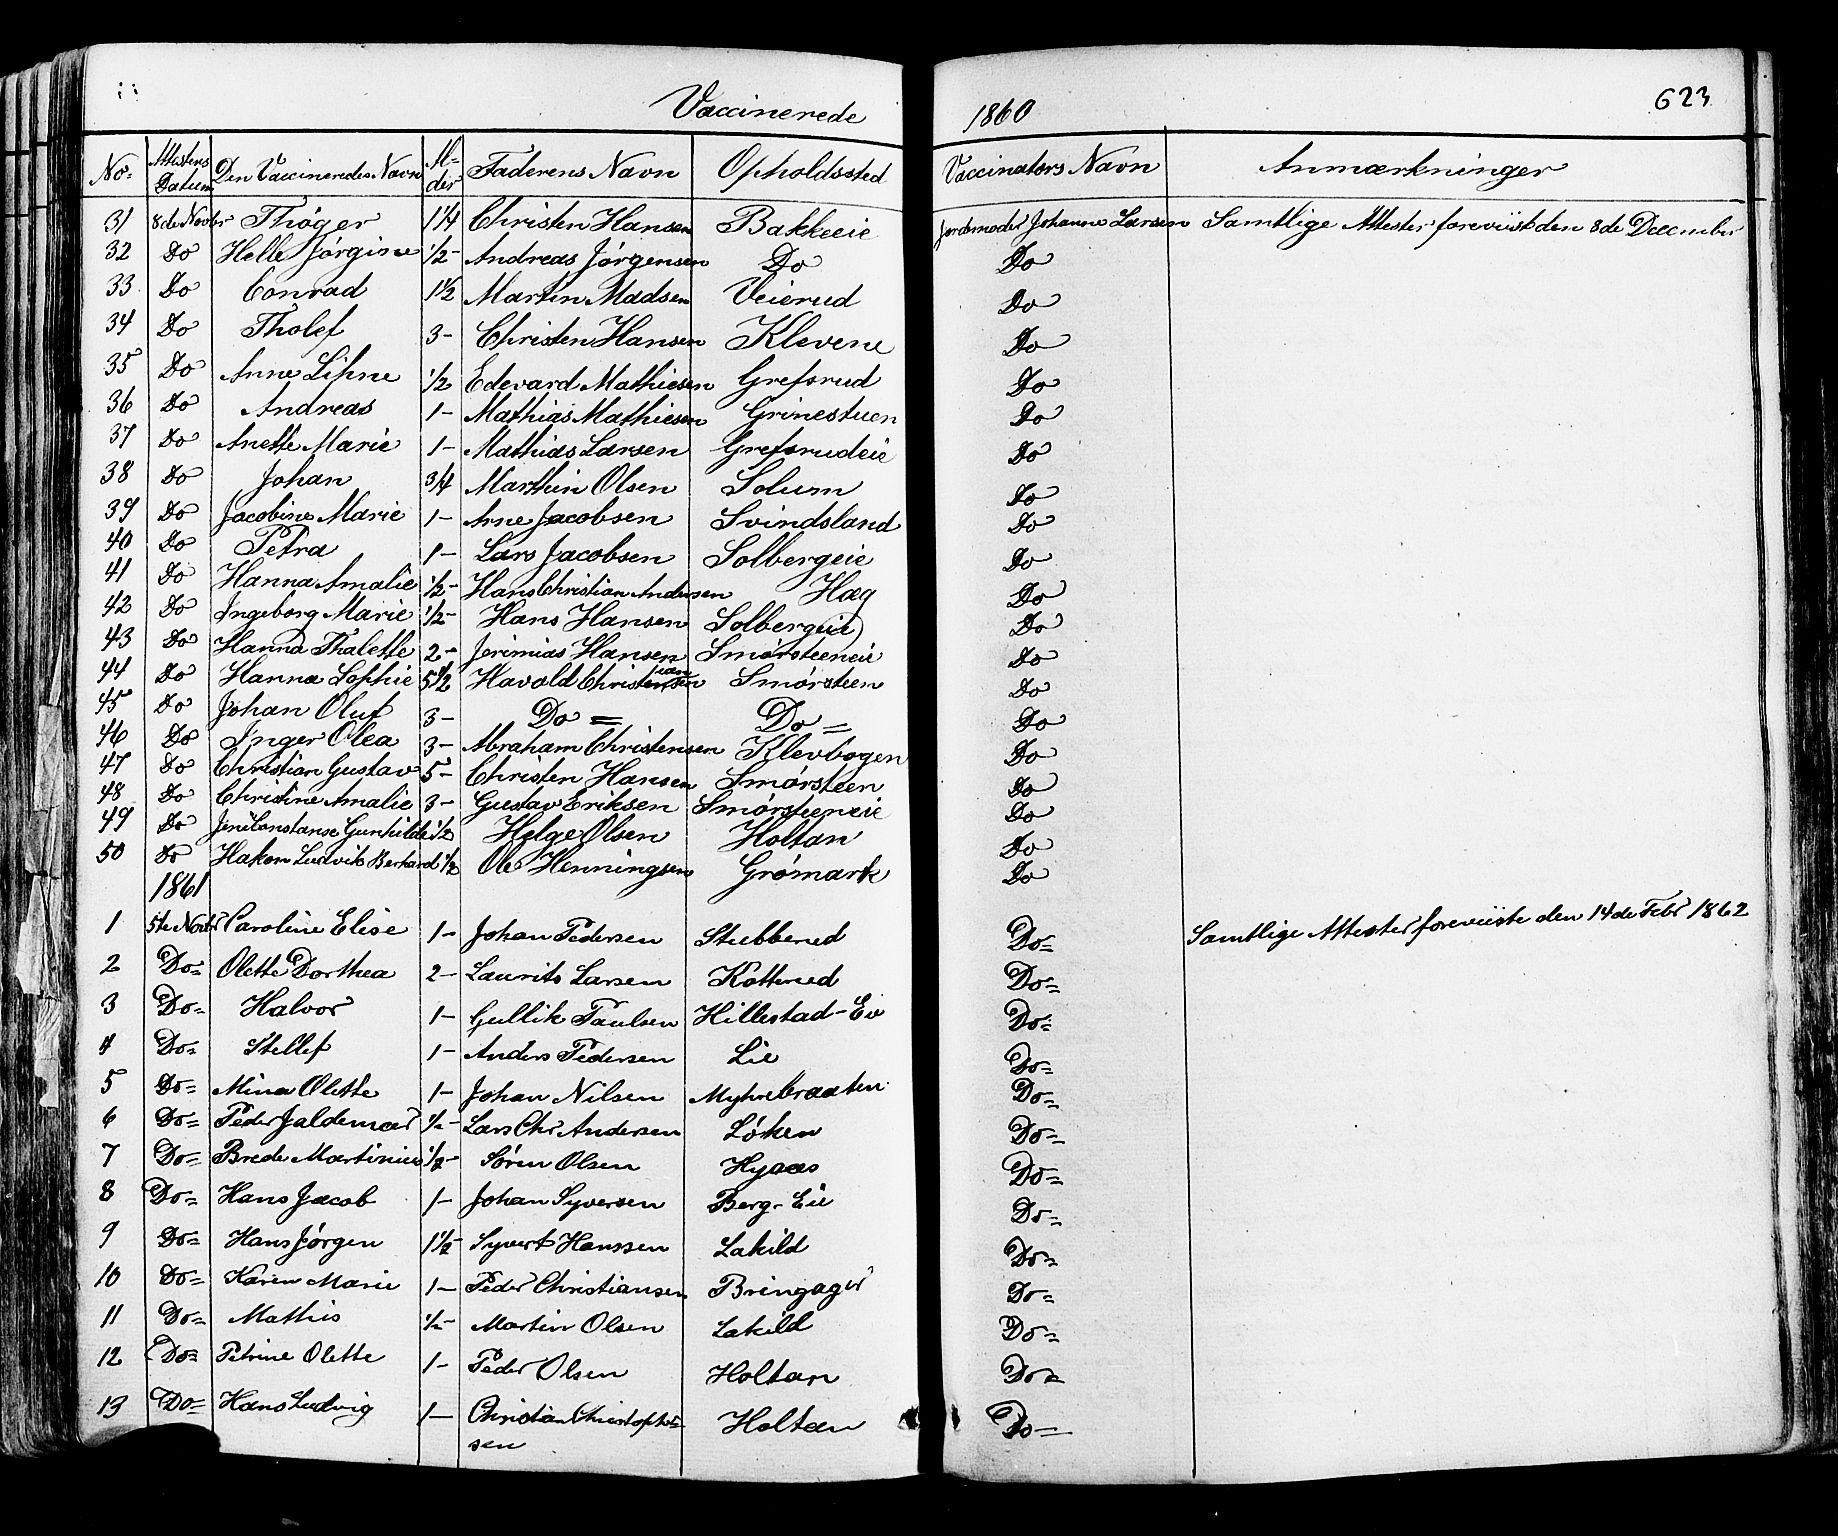 Vaccinerede 1860 623
No= Attestens Datum Den Vaccineredes Navn Al=der Faderens Navn Opholdssted Vaccinators Navn Anmærkninger
31 8de Novbr Thöger 1 1/4 Christen Hansen Bakkeeie Jordemoder Johanne Larsen Samtlige Attester foreviist den 8de December
32 Do Helle Jörgine 1/2- Andreas Jörgensen Do Do
33 Do Conrad 1 1/2 Martin Madsen Veierud Do
34 Do Tholef 3- Christen Hansen Klevene Do
35 Do Anne Lihne 1/2 Edevard Mathiesen Grefsrud Do
36 Do Andreas 1- Mathias Mathiesen Grinestuen Do
37 Do Anette Marie 1- Mathias Larsen Grefsrudeie Do
38 Do Johan 3/4 Marthin Olsen Solum Do
39 Do Jacobine Marie 1- Arne Jacobsen Svindsland Do
40 Do Petra 1- Lars Jacobsen Solbergeie Do
41 Do Hanna Amalie 1/2- Hans Christian Andersen Hag Do
42 Do Ingeborg Marie 1/2- Hans Hansen Solbergeie Do
43 Do Hanna Thalette 2- Jerimias Hansen Smörsteeneie Do
44 Do Hanna Sophie 5 1/2 Havold Christensen Smörsteen Do
45 Do Johan Oluf 3- Do= Do= Do
46 Do Inger Olea 3- Abraham Christensen Klevbogen Do
47 Do Christian Gustav 5- Christen Hansen Smörsteen Do
48 Do Christine Amalie 3- Gustav Eriksen Smörsteeneie Do
49 Do Jene Constanse Gunhilde 1/2 Helge Olsen Holtan Do
50 Do Hakon Ludvik Berhard 1/2 Ole Henningsen Grömark Do
1861
1 5te Novbr Caroline Elise 1- Johan Pedersen Stubberud Do= Samtlige Attester foreviiste den 14de Febr 1862
2 Do= Olette Dorthea 2- Laurits Larsen Kotterud Do=
3 Do= Halvor 1- Gullik Paulsen Hillestad-Eie Do=
4 Do= Stellef 1- Anders Pedersen Lie Do=
5 Do= Mina Olette 1- Johan Nilsen Myhrebraaten Do=
6 Do= Peder Jaldemar 1/2- Lars Chr Andersen Löken Do=
7 Do= Brede Martinius 1/2- Sören Olsen Hyaas Do=
8 Do= Hans Jacob 1- Johan Syversen Berg-Eie Do=
9 Do= Hans Jörgen 1 1/2- Syvert Hanssen Lakild Do=
10 Do= Karen Marie 1- Peder Christiansen Bringager Do=
11 Do= Mathis 1/2- Martin Olsen Lakild Do=
12 Do= Petrine Olette 1- Peder Olsen Holtan Do=
13 Do= Hans Ludvig 1- Christian Christopher= Holtan Do=
sen